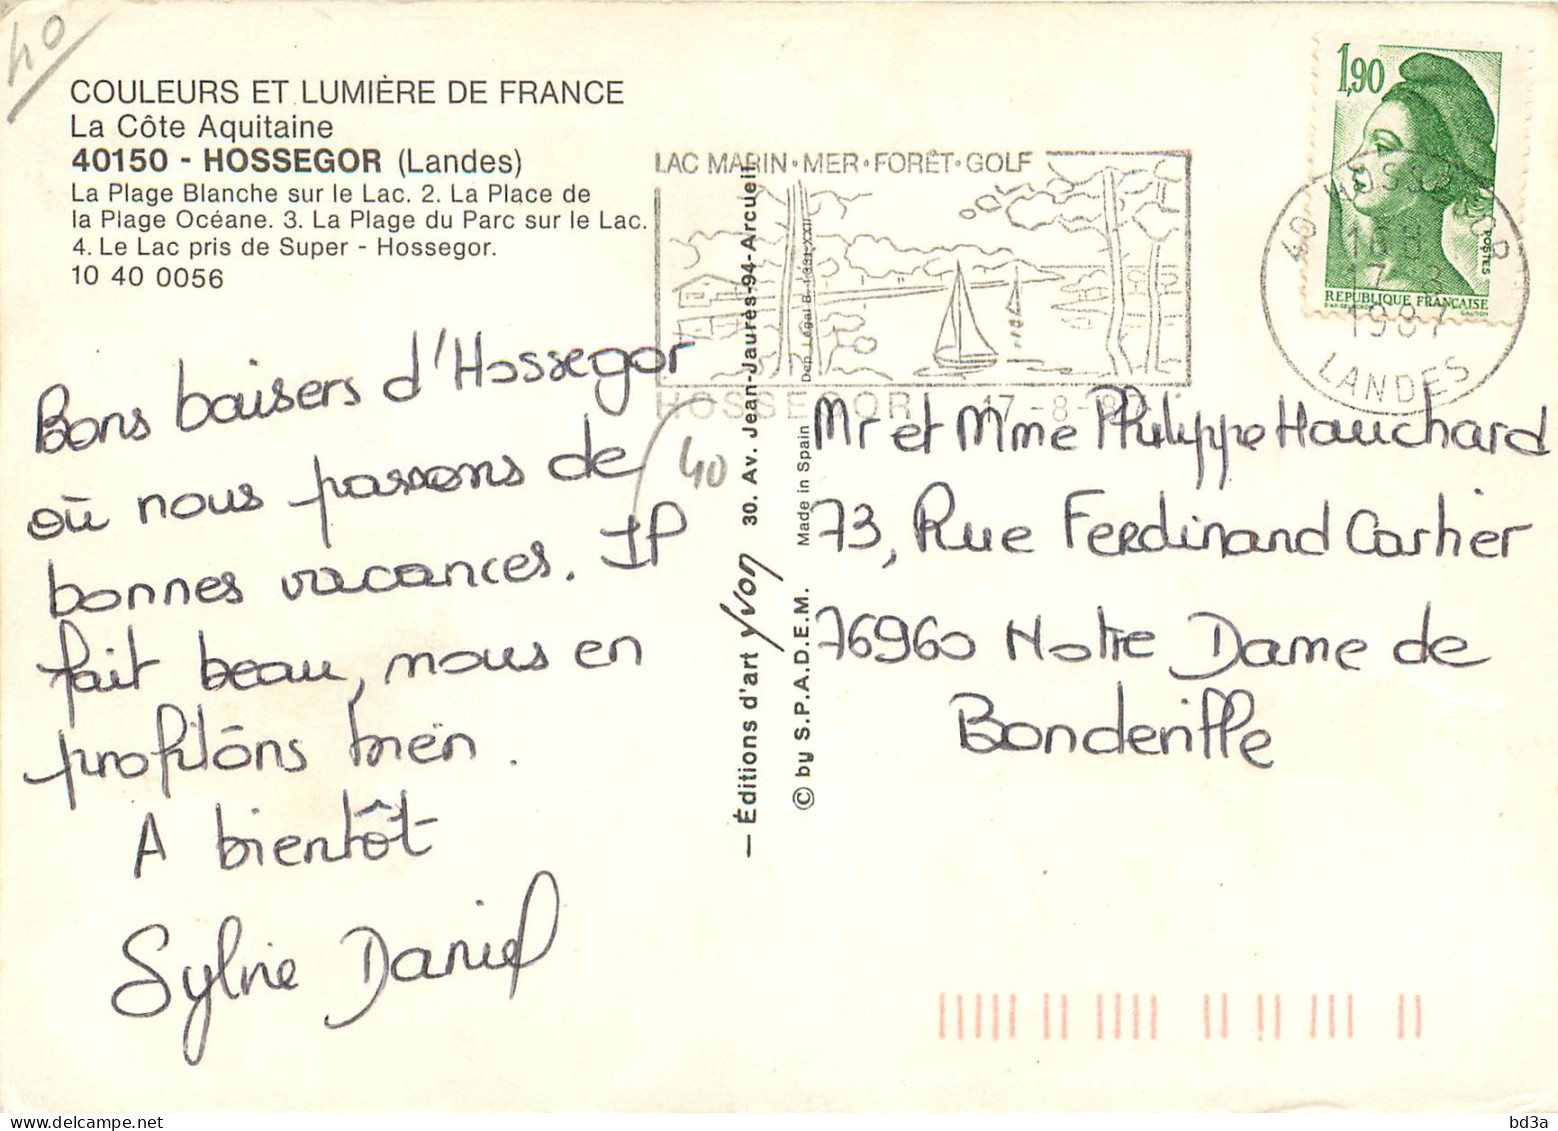 40
COULEURS ET LUMIÈRE DE FRANCE
La Côte Aquitaine
40150 - HOSSEGOR (Landes)
La Plage Blanche sur le Lac. 2. La Place de
la Plage Océane. 3. La Plage du Parc sur le Lac.
4. Le Lac pris de Super - Hossegor.
10 40 0056
Bons baisers d'Hossegor
où nous passons de
bonnes vacances. Il
fait beau, nous en
profitons bien.
A bientôt
Sylvie Daniel
40
LAC MARIN·MER·FORÊT·GOLF
HOSSEGOR 17-8-
— Éditions d'art yvon 30. Av. Jean-Jaurès-94-Arcueil
© by S.P.A.D.E.M. Made in Spain Dép. Légal B.
1,90
POSTES
REPUBLIQUE FRANÇAISE
GANDON
40 HOSSEGOR
16 H
17 8
1987
LANDES
Mr et Mme Philippe Hauchard
73, Rue Ferdinand Cartier
76960 Notre Dame de
Bondeville
bd3a